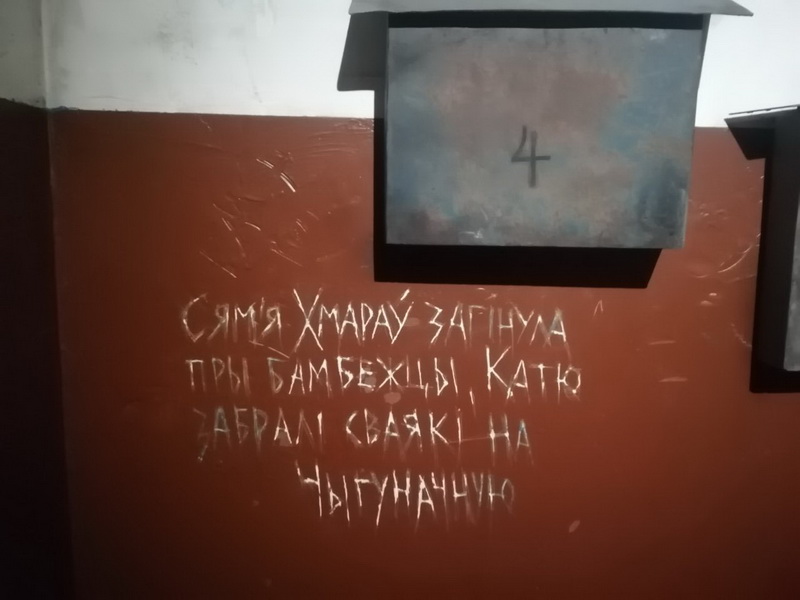 4
Сям'я Хмараў загінула
пры бамбежцы, Катю
забралі сваякі на
Чыгуначную